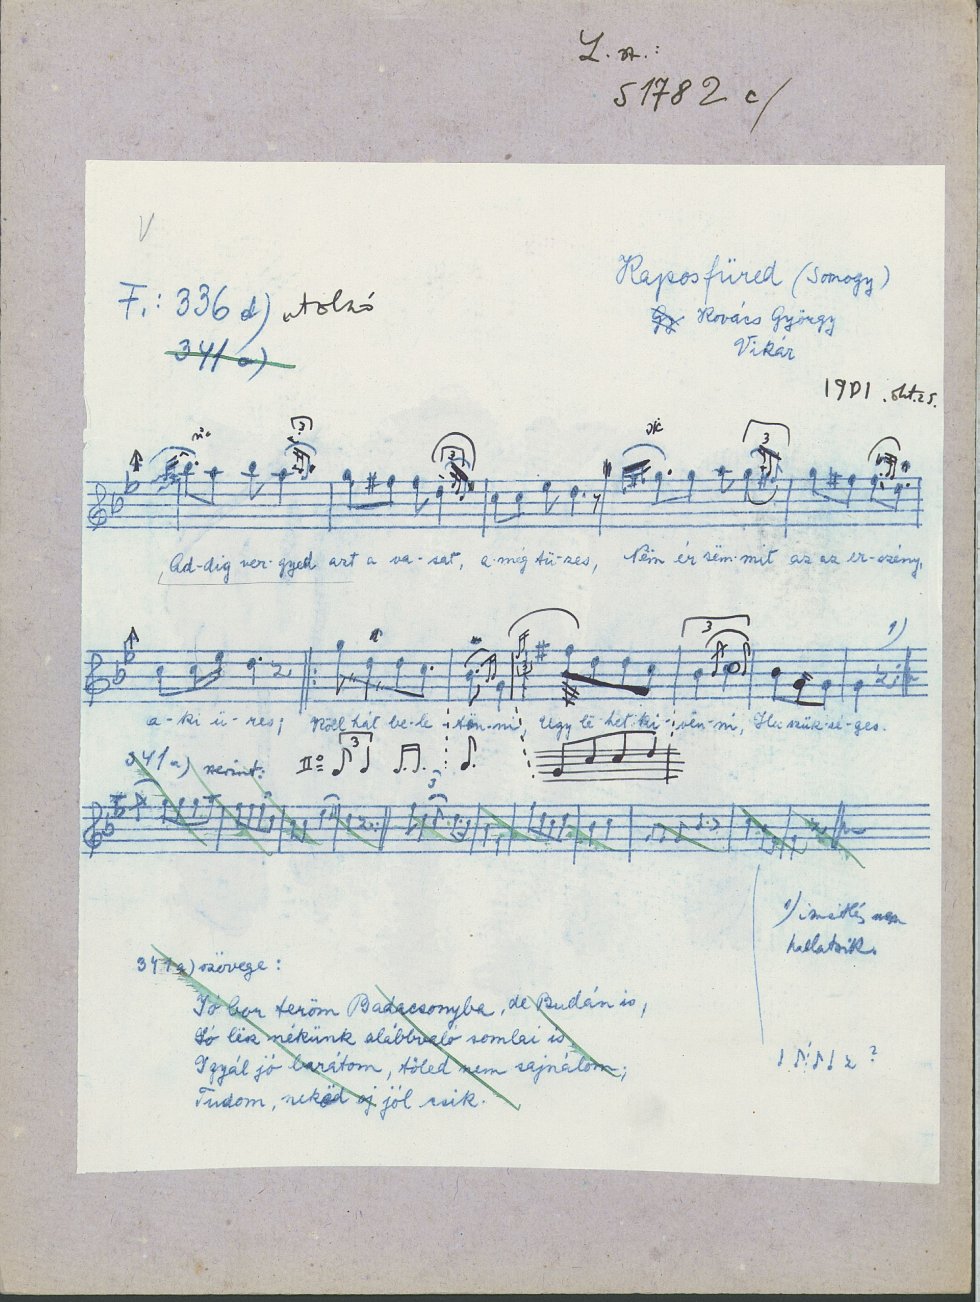 L. sz.:
51782 c/
Kaposfüred (Somogy)
F.: 336 d) utolsó
Gy Kovács György
341 a)
Vikár
1901. okt. 25.
Ad-dig ver-gyed azt a va-sat, a-még tü-zes, Nem ér sëm-mit az az er-szény,
a-ki ü-res; Köll hát be-le tön-ni, Ugy lë-het ki-vën-ni, Ha szük-sé-ges.
1)
341 a) szerint:
II=
3
1) ismétlés nem
hallatszik.
341 a) szövege:
Jó bor teröm Badacsonyba, de Budán is,
Jó lësz nékünk alábbvaló somlai is,
Igyál jó barátom, tőled nem sajnálom;
Tudom, neköd ez jól esik.
?